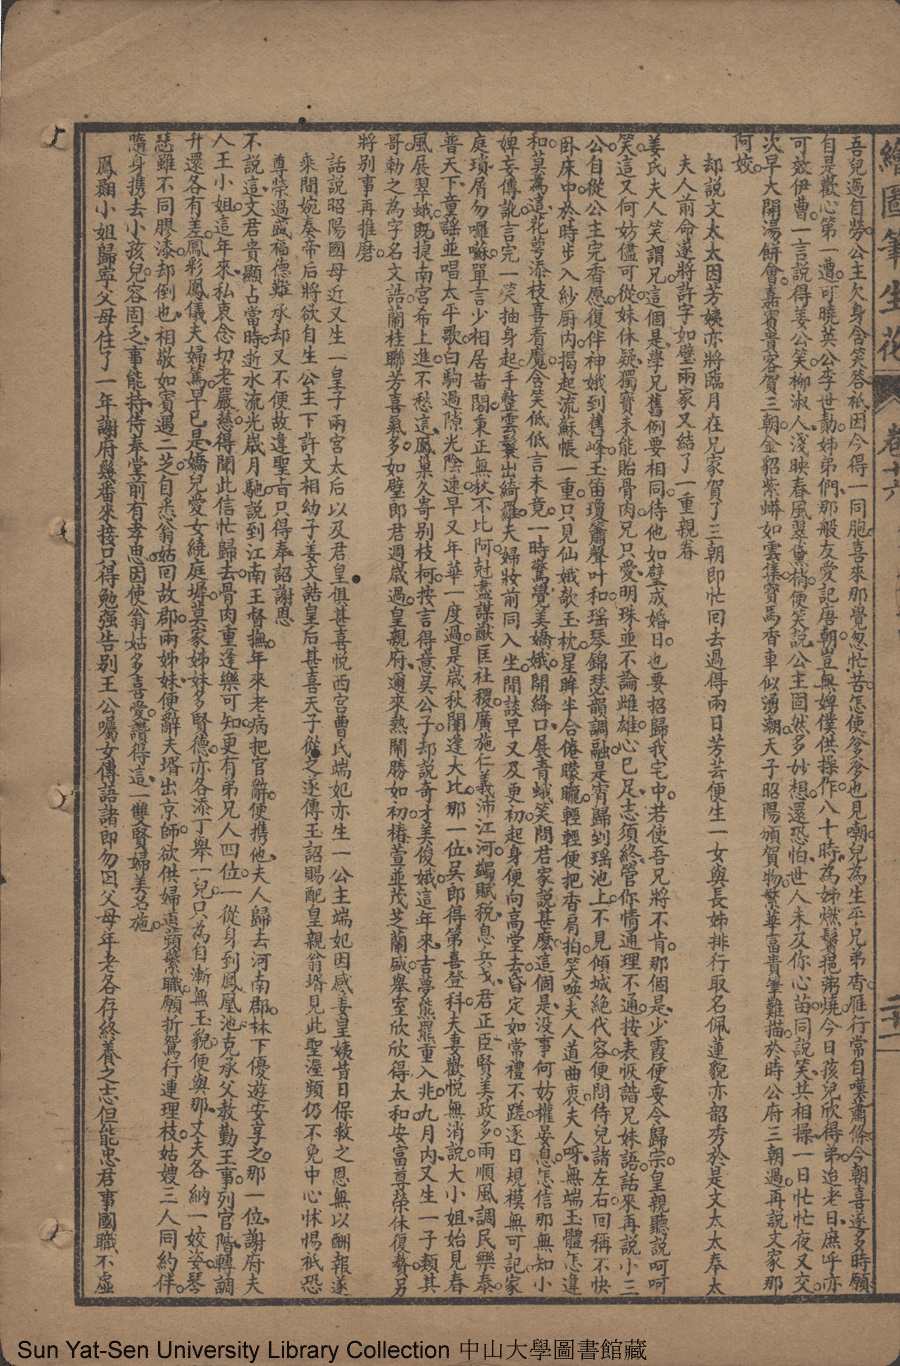 繪圖筆生花 卷十六
吾兒過自勞公主欠身含笑答祇因今得一同胞喜來那覺怱忙苦怎使爹爹也見嘲兒為生平兄弟杳雁行常自嘆蕭條今朝喜遂多時願
自是歡心第一遭可曉英公李世勣姊弟們那般友愛記唐朝豈無婢僕供操作八十時為姊燃鬚抱粥燒今日孩兒欣得弟追老日庶乎亦
可效伊曹一言說得姜公笑柳淑人淺映春風翠黛梢便笑說公主固然多妙想還恐怕世人未及你心苗同說笑共相操一日忙忙夜又交
次早大開湯餅會嘉賓貴客賀三朝金貂紫蟒如雲集寶馬香車似湧潮天子昭陽頒賀物繁華富貴筆難描於時公府三朝過再說文家那
阿姣
却說文太太因芳姨亦將臨月在兄家賀了三朝即忙回去過得兩日芳芸便生一女與長姊排行取名佩蓮貌亦韶秀於是文太太奉太
夫人前命遂將許字如璧兩家又結了一重親眷
姜氏夫人笑謂兄這個是學兄舊例要相同待他如璧成婚日也要招歸我宅中若使吾兄將不肯那個是少霞便要令歸宗皇親聽說呵呵
笑這又何妨儘可從妹休疑獨寳未能貽骨肉兄只愛明珠並不論雌雄心已足志須終管你情通理不通按表恢諧兄妹語話來再說小三
公自從公主完香愿復伴神娥到舊峰玉笛瓊簫聲叶和瑶琴錦瑟韻調融是宵歸到瑶池上不見傾城絕代容便問侍兒諸左右回稱不快
卧床中於時步入紗厨內揭起流蘇帳一重只見仙娥欹玉枕星眸半合倦矇矓輕輕便把香肩拍笑喚夫人道曲衷夫人呀無端玉體怎違
和莫為這花萼添枝喜着魔含笑低低言未竟一時驚覺美嬌娥開絳口展青蛾笑問君家說甚麽這個是没事何妨權晏息怎信那無知小
婢妄傳訛言完一笑抽身起手整雲鬟出綺羅夫婦妝前同入坐閒談早又及更初起身便向高堂去昏定如常禮不蹉逐日規模無可記家
庭瑣屑勿囉囌單言少相居昔閣秉正無私不比阿尅盡謀猷匡社稷廣施仁義沛江河蠲賦稅息兵戈君正臣賢美政多雨順風調民樂泰
普天下童謡並唱太平歌白駒過隙光陰速早又年華一度過是歲秋闈逢大比那一位吳郎得第喜登科夫妻歡悦無消說大小姐始見春
風展翠蛾既捷南宮希上進不愁這鳳巢久寄別枝柯按言得意吳公子却說奇才美俊娥這年來吉夢熊羆重入兆九月內又生一子類其
哥勅之為字名文誥蘭桂聯芳喜氣多如璧郎君週歲過皇親府邇來熱鬧勝如初椿萱並茂芝蘭盛舉室欣欣得太和安富尊榮休復贅另
將別事再推磨
話說昭陽國母近又生一皇子兩宮太后以及君皇俱甚喜悦西宮曹氏端妃亦生一公主端妃因感姜皇姨昔日保救之恩無以酬報遂
來間婉奏帝后將欲自生公主下許文相幼子姜文誥皇后甚喜天子從之遂傳玉詔賜配皇親翁壻見此聖渥頻仍不免中心怵惕祇恐
尊榮過盛福德難承却又不便故違聖旨只得奉詔謝恩
不說這文君貴顯占當時逝水流光歲月馳說到江南王督撫年來老病把官辭便携他夫人歸去河南郡林下優遊安享之那一位謝府夫
人王小姐這年來私衷念切老嚴慈得聞此信忙歸去骨肉重逢樂可知更有弟兄人四位一從身到鳳凰池克承父教勤王事列官階轉調
升還各有差鳳彩鳳儀夫婦篤早已是嬌兒愛女繞庭墀莫家姊妹多賢德亦各添丁舉一兒只為自漸無玉貌便與那丈夫各納一姣姿琴
瑟雖不同膠漆却倒也相敬如賓過二芝自悉翁姑回故郡兩姊妹便辭夫壻出京師欲供婦道蘋蘩職願折駕行連理枝姑嫂三人同約伴
隨身携去小孩兒容固之事能持侍奉堂前有孝思因使翁姑多喜愛讚得這一雙賢婦美名施
鳳顯小姐歸寧父母住了一年謝府幾番來接只得勉强告別王公囑女傳語諸郎勿因父母年老各存終養之志但能忠君事國職不虛
Sun Yat-Sen University Library Collection 中山大學圖書館藏